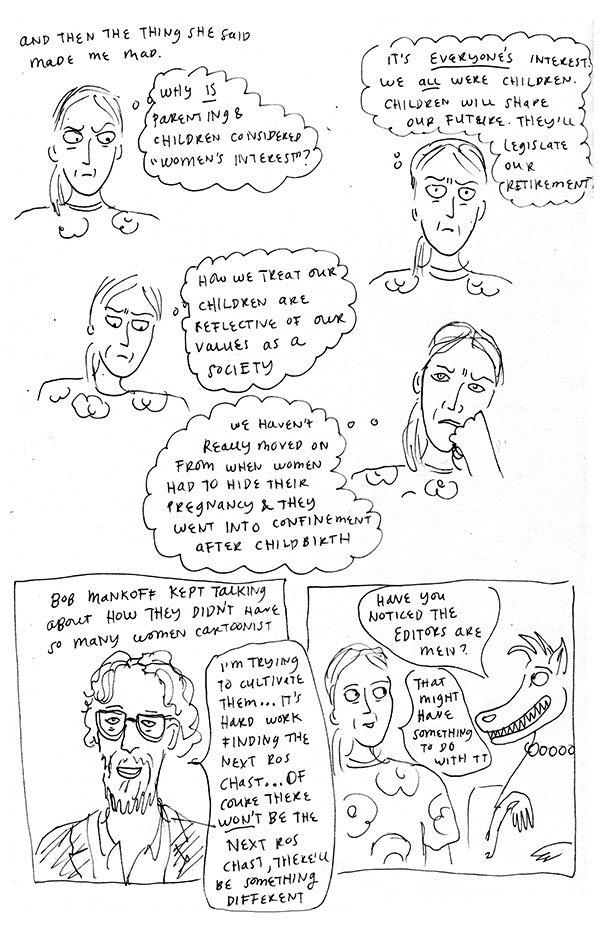 AND THEN THE THING SHE SAID
MADE ME MAD.
WHY IS
PARENTING &
CHILDREN CONSIDERED
"WOMEN'S INTEREST"?
IT'S EVERYONE'S INTEREST.
WE ALL WERE CHILDREN.
CHILDREN WILL SHAPE
OUR FUTURE. THEY'LL
LEGISLATE
OUR
RETIREMENT
HOW WE TREAT OUR
CHILDREN ARE
REFLECTIVE OF OUR
VALUES AS A
SOCIETY
WE HAVEN'T
REALLY MOVED ON
FROM WHEN WOMEN
HAD TO HIDE THEIR
PREGNANCY & THEY
WENT INTO CONFINEMENT
AFTER CHILDBIRTH
BOB MANKOFF KEPT TALKING
ABOUT HOW THEY DIDN'T HAVE
SO MANY WOMEN CARTOONIST
I'M TRYING
TO CULTIVATE
THEM... IT'S
HARD WORK
FINDING THE
NEXT ROS
CHAST... OF
COURE THERE
WON'T BE THE
NEXT ROS
CHAST, THERE'LL
BE SOMETHING
DIFFERENT
HAVE YOU
NOTICED THE
EDITORS ARE
MEN?
THAT
MIGHT
HAVE
SOMETHING
TO DO
WITH IT